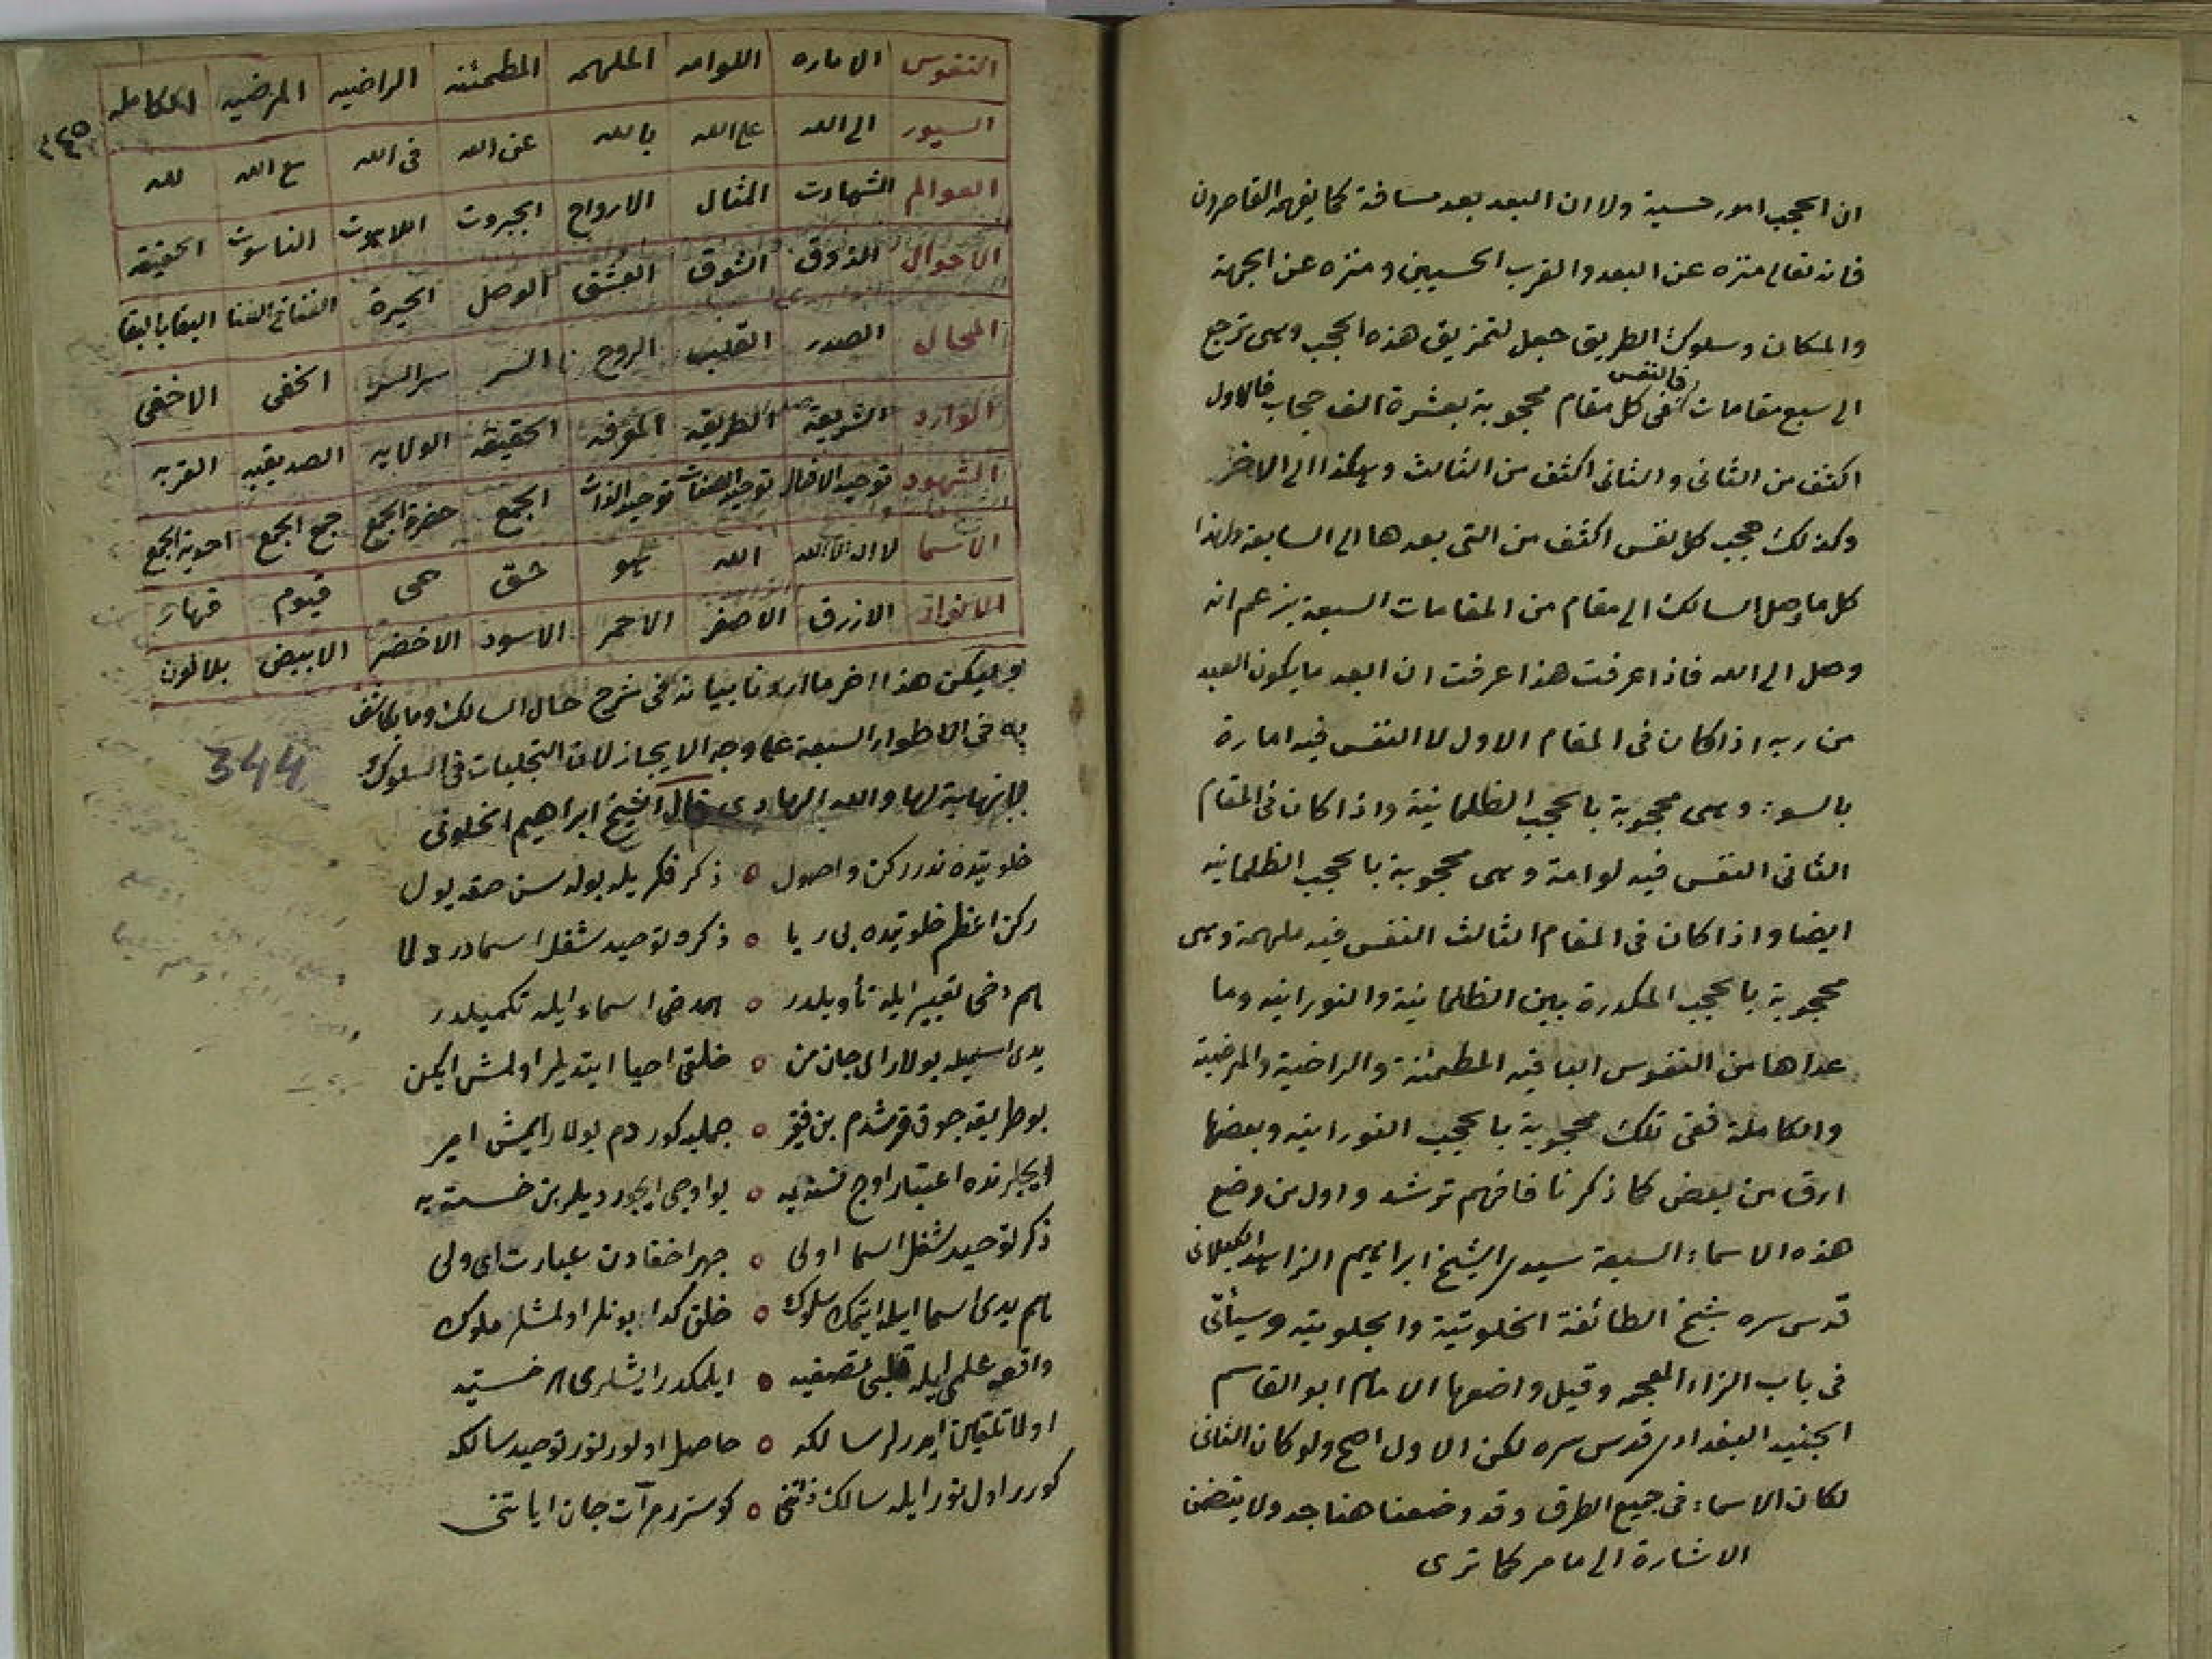 ان الحجب امور حسية ولا ان البعد بعد مسافة كما يفهمه القاصرون
فانه تعالى منزه عن البعد والقرب الحسيين ومنزه عن الجهة
والمكان وسلوك الطريق جعل لتمزيق هذه الحجب وهى ترجع
الى سبع مقامات فالنفس فى كل مقام محجوبة بعشرة الف حجاب فالاول
اكثف من الثانى والثانى اكثف من الثالث وهكذا الى الاخر
وكذلك حجب كل نفس اكثف من التى بعدها الى السابعة ولهذا
كل ما وصل السالك الى مقام من المقامات السبعة يزعم انه
وصل الى الله فاذا عرفت هذا عرفت ان ابعد ما يكون العبد
من ربه اذا كان فى المقام الاول لا النفس فيه امارة
بالسوء وهى محجوبة بالحجب الظلمانية واذا كان فى المقام
الثانى النفس فيه لوامة وهى محجوبة بالحجب الظلمانيه
ايضا واذا كان فى المقام الثالث النفس فيه ملهمة وهى
محجوبة بالحجب المكدرة بين الظلمانية والنورانيه وما
عداها من النفوس الباقيه المطمئنة والراضية والمرضية
والكاملة ففى تلك محجوبة بالحجب النورانيه وبعضها
ارق من بعض كما ذكرنا فافهم ترشد واول من وضع
هذه الاسماء السبعة سيدى الشيخ ابراهيم الزاهد الكيلانى
قدس سره شيخ الطائفة الخلوتية والجلوتيه وسيأتى
فى باب الزاء المعجمه وقيل واضعها الامام ابو القاسم
الجنيد البغدادى قدس سره لكن الاول اصح ولو كان الثانى
لكان الاسماء فى جميع الطرق وقد وضعنا هنا جدولا يتضمن
الاشارة الى ما مر كما ترى
النفوس الاماره اللوامه الملهمه المطمئنه الراضيه المرضيه الكامله
السيور الى الله على الله بالله عن الله فى الله مع الله لله
العوالم الشهادت المثال الارواح الجبروت اللاهوت الناسوت الحقيقة
الاحوال الذوق الشوق العشق الوصل الحيرة الفنا فى الفنا البقا بالبقا
المحال الصدر القلب الروح السر سر السر الخفى الاخفى
الوارد الشريعة الطريقه المعرفه الحقيقه الولايه الصديقيه القربه
الشهود توحيد الافعال توحيد الصفات توحيد الذات الجمع حضرة الجمع جمع الجمع احدية الجمع
الاسما لا اله الا الله الله هو حق حى قيوم قهار
الانوار الازرق الاصفر الاحمر الاسود الاخضر الابيض بلا لون
وليكن هذا اخر ما اردنا بيانه فى شرح حال السالك وما يكاشف
به فى الاطوار السبعة على وجه الايجاز لان التجليات فى السلوك
لا نهاية لها والله الهادى قال الشيخ ابراهيم الخلوتى
344
خلوتيده ندر ركن واصول ٥ ذكر فكريله بوله سن حقه يول
ركن اعظم خلوتيده بى ريا ٥ ذكر وتوحيد شغل اسمادر دلا
هم دخى تعبير ايله تأويلدر ٥ هم دخى اسماء ايله تكميلدر
يدى اسميله بولار اى جان من ٥ خلقى احيا ايتديلر اولمش ايكن
بو طريقه جوق قرشدم بن فقير ٥ جمله كوردم بولار ايمش امير
ايجلرنده اعتبار اوج نسنه يه ٥ بو اوجى ايجور ديلر بن خسته يه
ذكر توحيد شغل اسما اولى ٥ جهر اخفادن عبارت اى ولى
هم يدى اسما ايله ايتمك سلوك ٥ خلق كدا بونلر اولمشلر ملوك
واقعه علمى ايله قلبى تصفيه ٥ ايلمكدر ايشلرى خستيه
اولا تلقين ايدرلر سالكه ٥ حاصل اولور نور توحيد سالكه
كورر اول نور ايله سالك ذاتنى ٥ كوسترر مرآت جان اياتنى